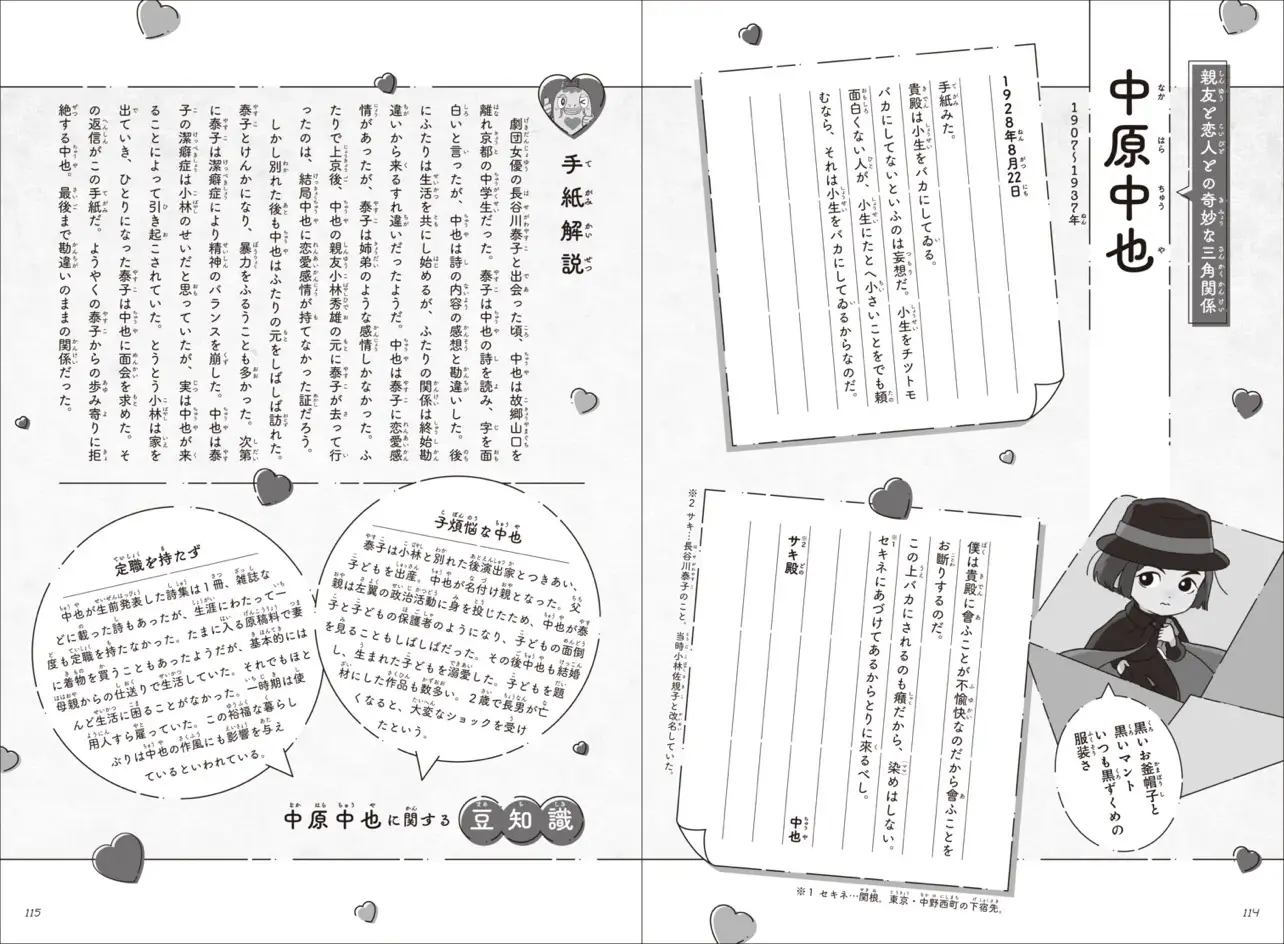 親友と恋人との奇妙な三角関係
中原中也
1907〜1937年
1928年8月22日
手紙みた。
貴殿は小生をバカにしてゐる。
バカにしてないといふのは妄想だ。小生をチツトモ
面白くない人が、小生にたとへ小さいことをでも頼
むなら、それは小生をバカにしてゐるからなのだ。
僕は貴殿に會ふことが不愉快なのだから會ふことを
お断りするのだ。
この上バカにされるのも癪だから、染めはしない。
※1
セキネにあづけてあるからとりに來るべし。
中也
※2
サキ殿
※1 セキネ…関根。東京・中野西町の下宿先。
※2 サキ…長谷川泰子のこと。当時小林佐規子と改名していた。
黒いお釜帽子と
黒いマント
いつも黒ずくめの
服装さ
114
手紙解説
劇団女優の長谷川泰子と出会った頃、中也は故郷山口を
離れ京都の中学生だった。泰子は中也の詩を読み、字を面
白いと言ったが、中也は詩の内容の感想と勘違いした。後
にふたりは生活を共にし始めるが、ふたりの関係は終始勘
違いから来るすれ違いだったようだ。中也は泰子に恋愛感
情があったが、泰子は姉弟のような感情しかなかった。ふ
たりで上京後、中也の親友小林秀雄の元に泰子が去って行
ったのは、結局中也に恋愛感情が持てなかった証だろう。
しかし別れた後も中也はふたりの元をしばしば訪れた。
泰子とけんかになり、暴力をふるうことも多かった。次第
に泰子は潔癖症により精神のバランスを崩した。中也は泰
子の潔癖症は小林のせいだと思っていたが、実は中也が来
ることによって引き起こされていた。とうとう小林は家を
出ていき、ひとりになった泰子は中也に面会を求めた。そ
の返信がこの手紙だ。ようやくの泰子からの歩み寄りに拒
絶する中也。最後まで勘違いのままの関係だった。
子煩悩な中也
泰子は小林と別れた後演出家とつきあい、
子どもを出産。中也が名付け親となった。父
親は左翼の政治活動に身を投じたため、中也が泰
子と子どもの保護者のようになり、子どもの面倒
を見ることもしばしばだった。その後中也も結婚
し、生まれた子どもを溺愛した。子どもを題
材にした作品も数多い。2歳で長男が亡
くなると、大変なショックを受け
たという。
定職を持たず
中也が生前発表した詩集は1冊、雑誌な
どに載った詩もあったが、生涯にわたって一
度も定職を持たなかった。たまに入る原稿料で妻
に着物を買うこともあったようだが、基本的には
母親からの仕送りで生活していた。それでもほと
んど生活に困ることがなかった。一時期は使
用人すら雇っていた。この裕福な暮らし
ぶりは中也の作風にも影響を与え
ているといわれている。
中原中也に関する豆知識
115